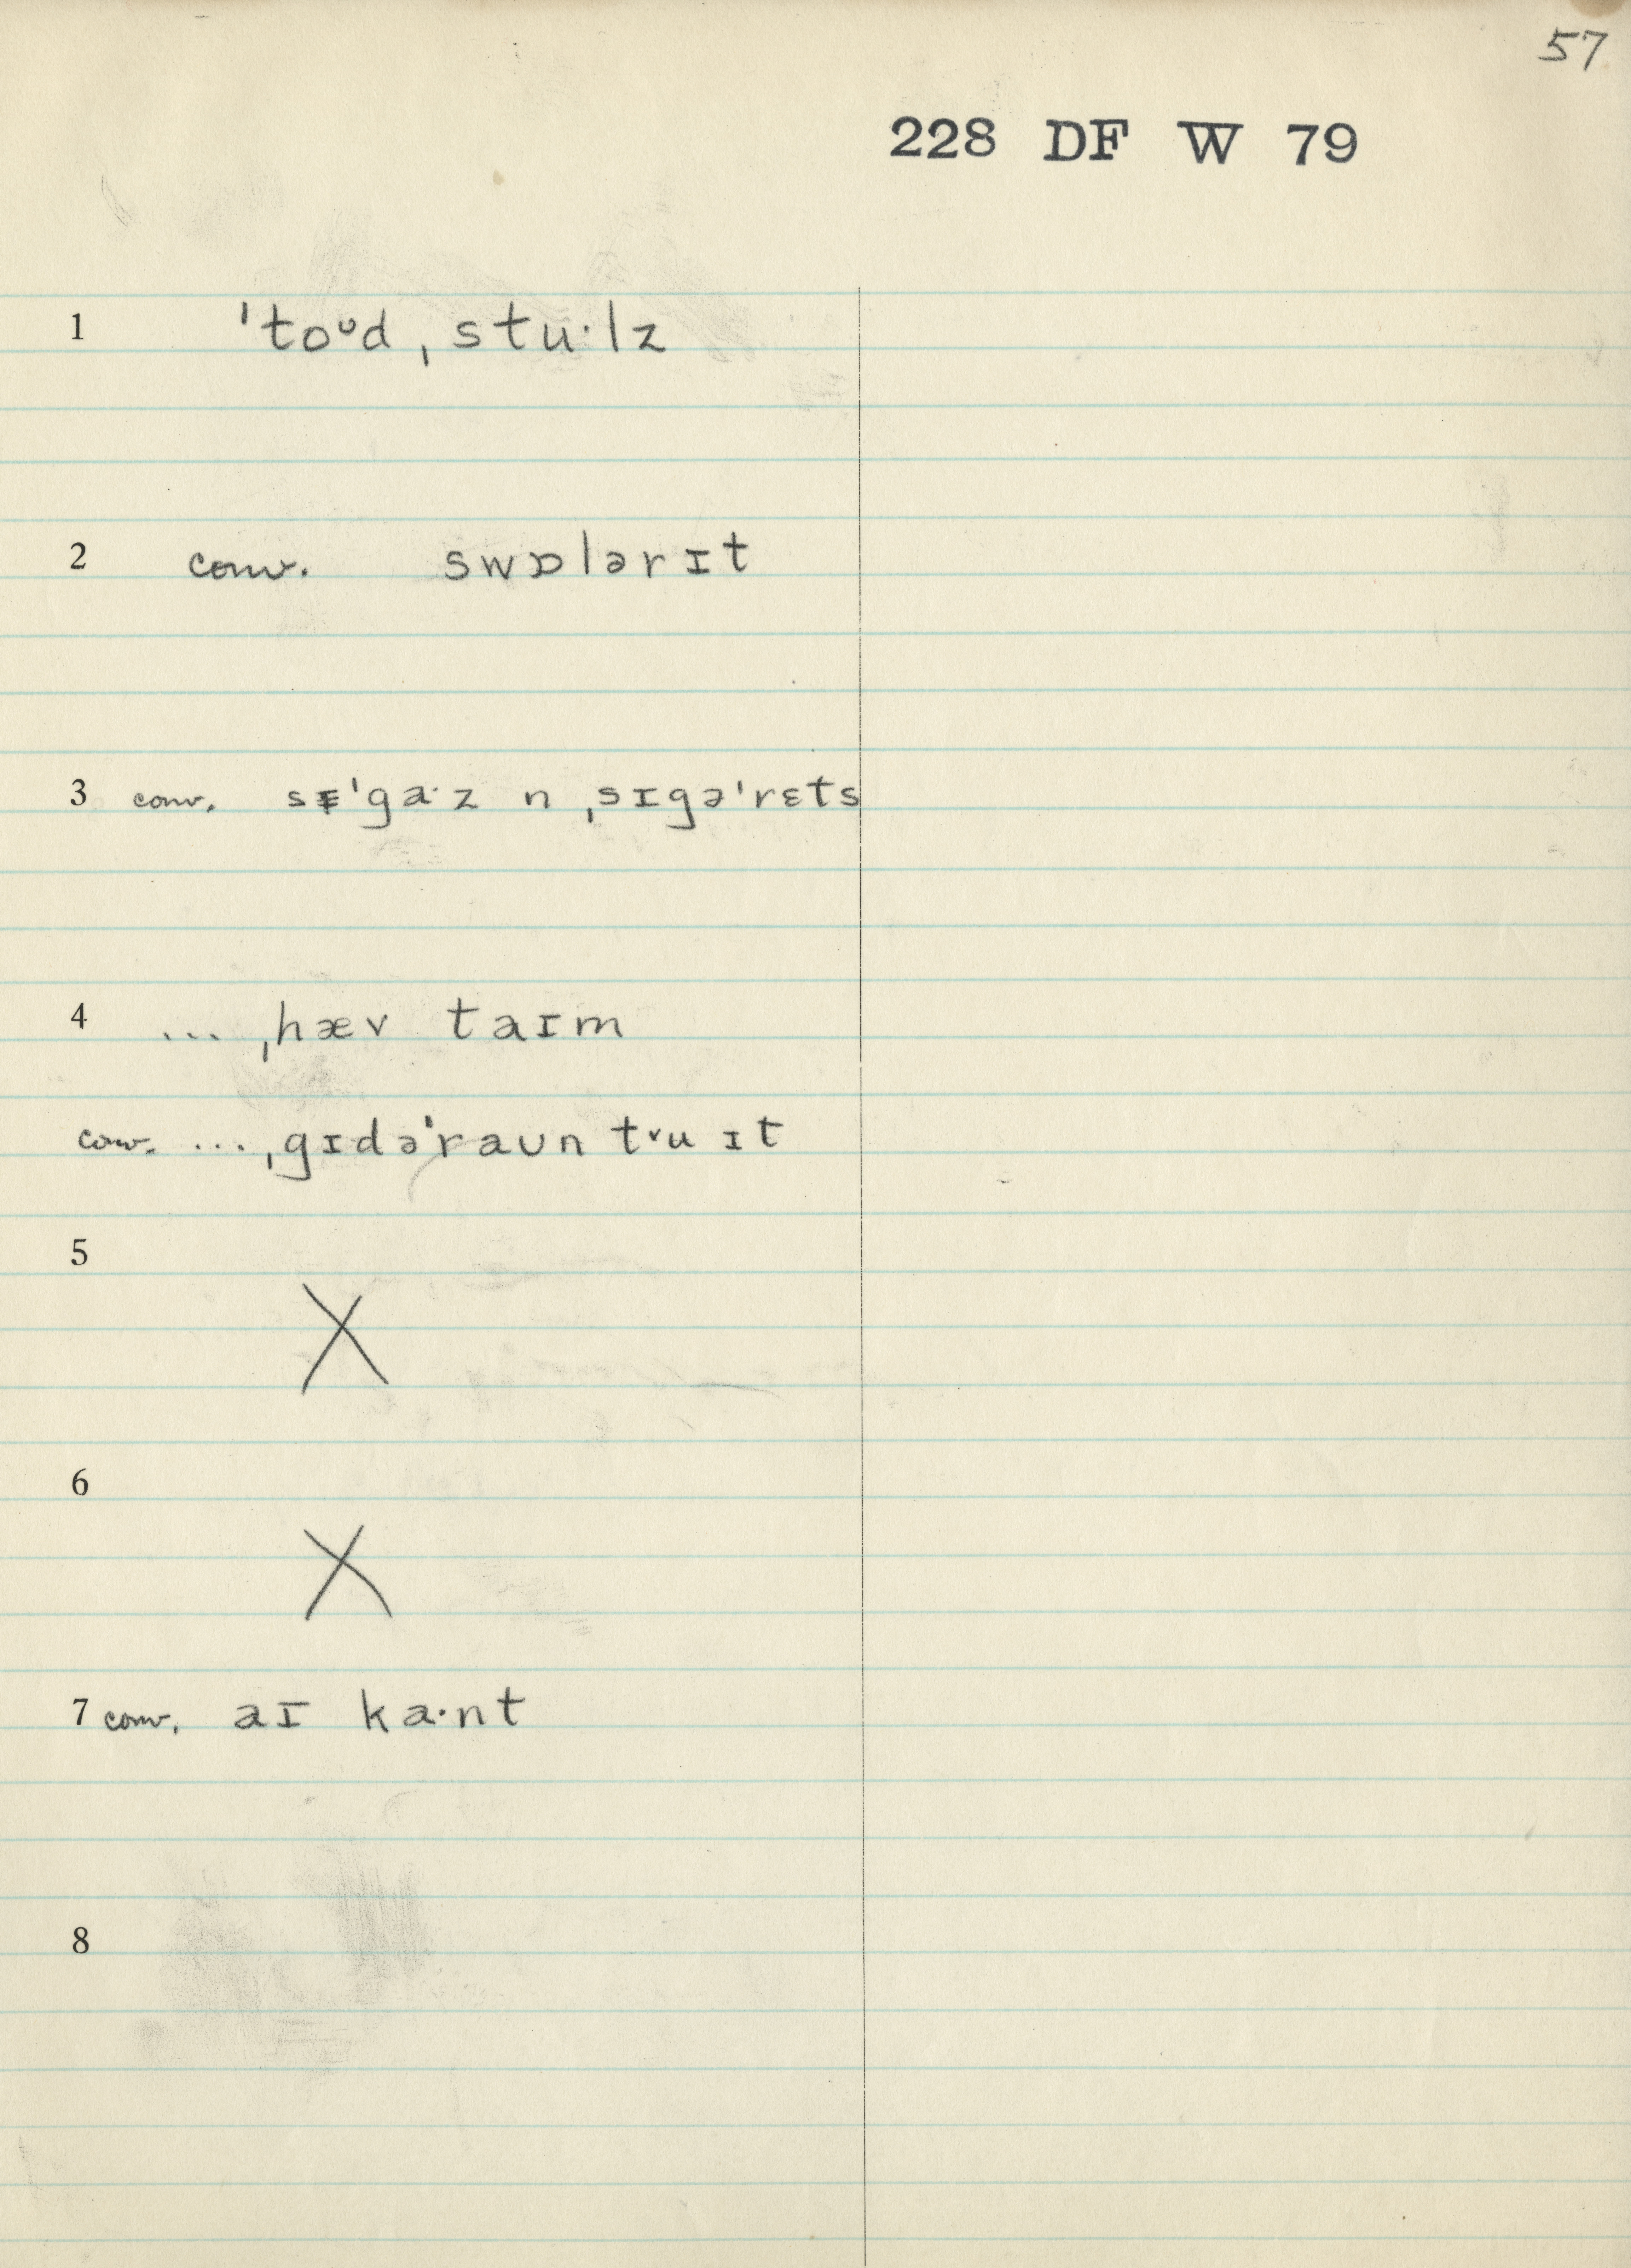 57
228 DF W 79
1 ˈtoᶷd ˌstu·lz
2 conv. swɒlərɪt
3 conv. sɪˈga·z n ˌsɪgəˈrɛts
4 ... ˌhæv taɪm
conv. ... ˌgɪdəˈraun tᵛu ɪt
5 X
6 X
7 conv. aɪ ka·nt
8